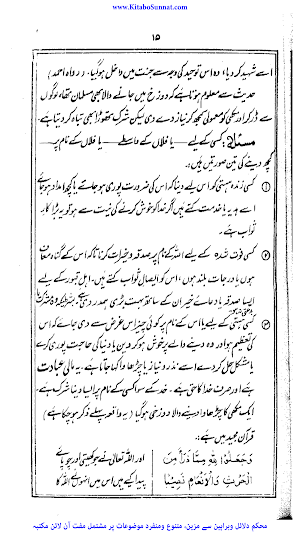 www.KitaboSunnat.com
۱۵
اسے شہید کر دیا، وہ اس توحید کی وجہ سے جنت میں داخل ہو گیا۔ (رواہ احمد)
حدیث سے معلوم ہوتا ہے کہ دوزخ میں جانے والا بھی مسلمان تھا، لوگوں
سے ڈر کر اور مکھی کو معمولی سمجھ کر نیاز دے دی لیکن شرک تھوڑا بھی تباہ کر دیتا ہے۔
مسئلہ : کسی کے لیے — یا فلاں کے واسطے — یا فلاں کے نام پر —
کچھ دینے کی تین صورتیں ہیں:۔
① کسی زندہ ہستی کو اس لیے دینا کہ اس کی ضرورت پوری ہو جائے یا کچھ امداد ہو جائے
اسے ہدیہ یا خدمت کہتے ہیں اگر خدا کو خوش کرنے کی نیت سے ہو تو یہ بڑا کارِ
ثواب ہے۔
② کسی فوت شدہ کے لیے اللہ کے نام پر صدقہ و خیرات کرنا تاکہ اس کے گناہ معاف
ہوں یا درجات بلند ہوں، اس کو ایصال ثواب کہتے ہیں، اہل قبور کے لیے
ایسا صدقہ یا دعائے خیر ان کے ساتھ بہت بڑی ہمدردی
③ کسی ہستی کے لیے یا اس کے نام پر کوئی چیز اس غرض سے دی جائے کہ اس
کی تعظیم ہو اور وہ دینے والے سے خوش ہو کر دین یا دنیا کی حاجت پوری کرے
یا مشکل حل کر دے اسے نذر و نیاز یا چڑھاوا کہا جاتا ہے۔ یہ مالی عبادت
ہے اور صرف خدا کا حق ہے۔ خدا کے سوا کسی کے نام پر ایسا دینا شرک ہے
ایک مکھی کا چڑھاوا دینے والا دوزخی ہو گیا (یہ واقعہ پہلے ذکر ہو چکا ہے)
قرآن مجید میں ہے:۔
وَجَعَلُوا لِلَّهِ مِمَّا ذَرَأَ مِنَ
الْحَرْثِ وَالْأَنْعَامِ نَصِيبًا
اور اللہ تعالیٰ نے جو کھیتی اور چوپائے
پیدا کیے ہیں اس میں انھوں نے اللہ کا
محکم دلائل وبراہین سے مزین، متنوع ومنفرد موضوعات پر مشتمل مفت آن لائن مکتبہ